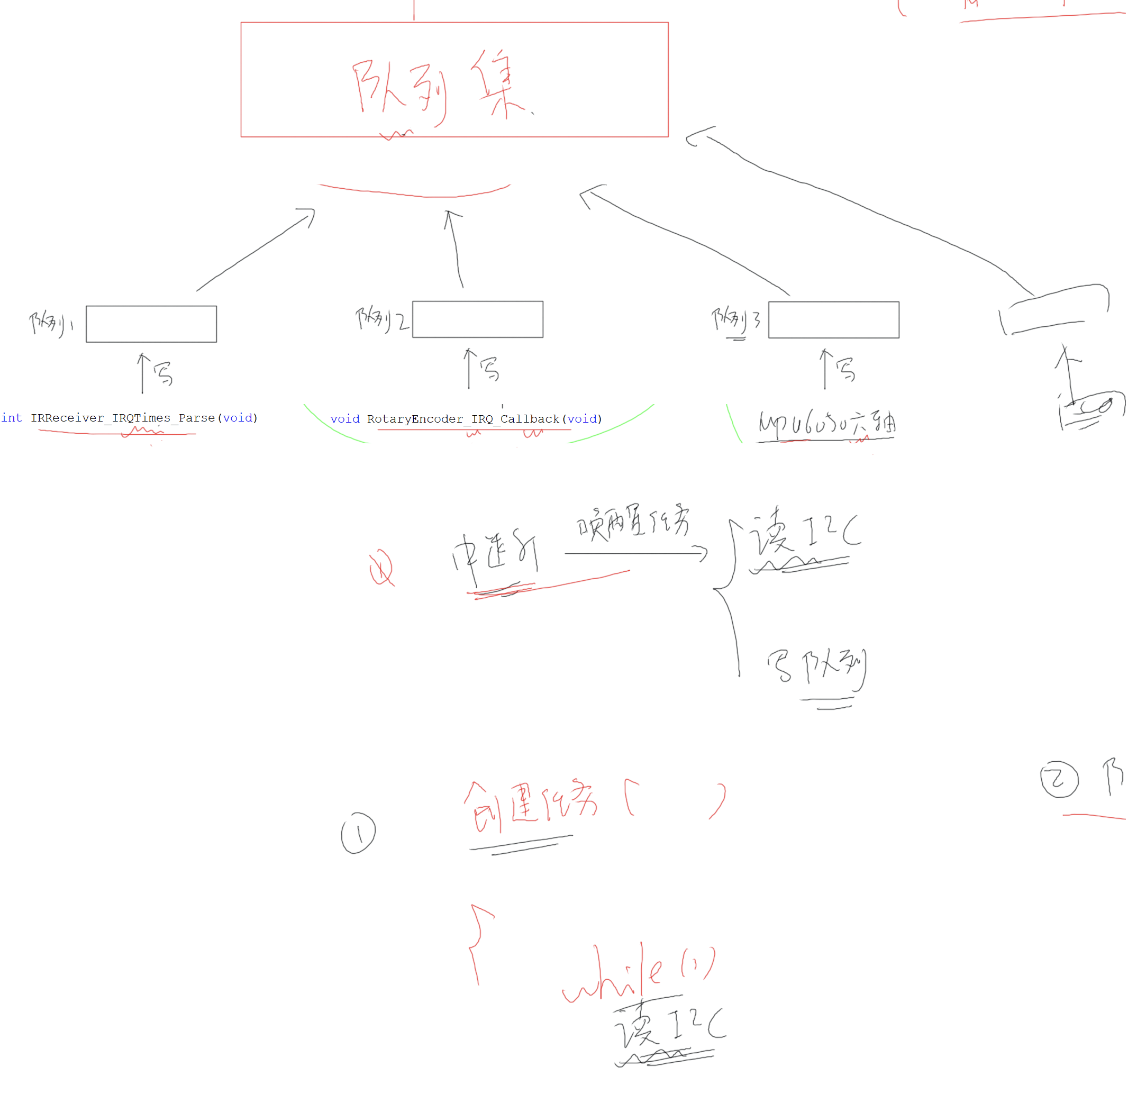 队列集
队列1
队列2
队列3
写
写
写
int IRReceiver_IRQTimes_Parse(void)
void RotaryEncoder_IRQ_Callback(void)
MPU6050六轴
中断 唤醒任务 读I2C
写队列
② 
① 创建任务( )
{
while(1)
读I2C